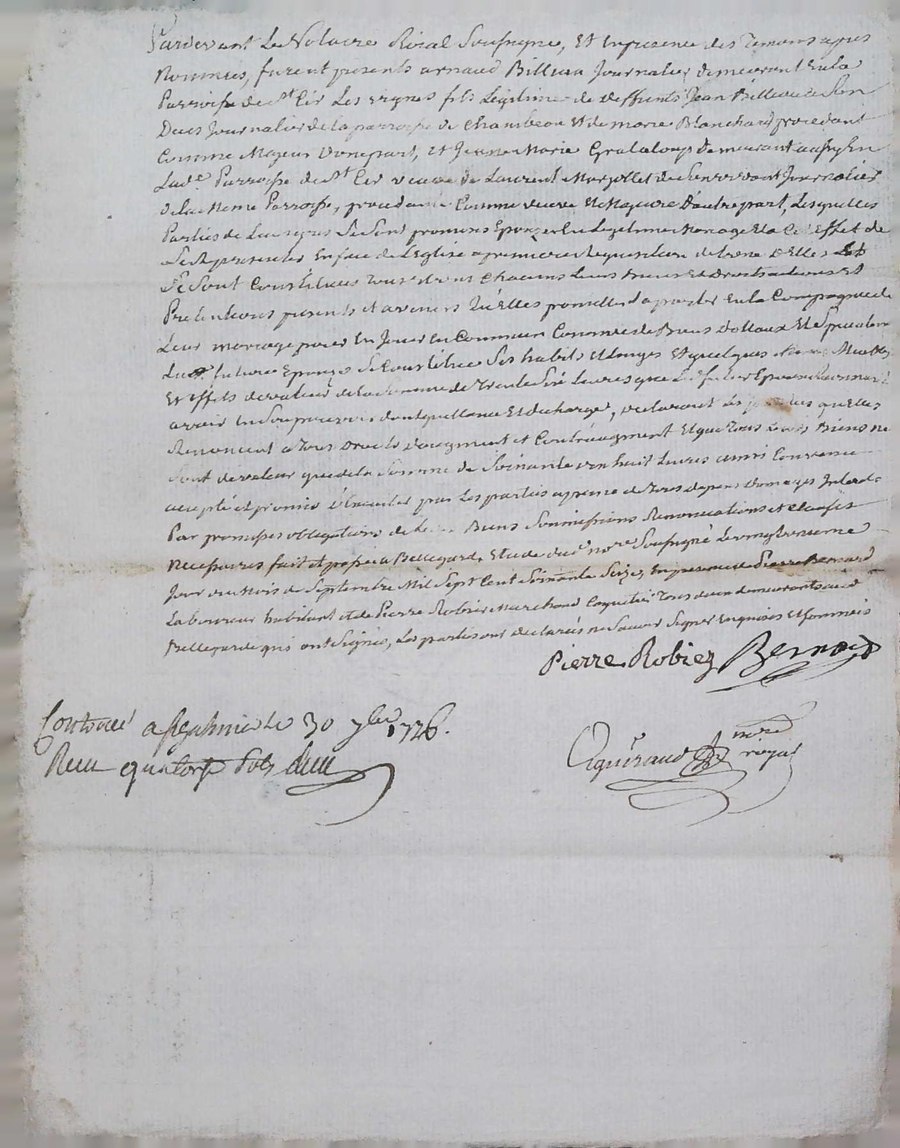 Pardevant Le Notaire Roial Soussigné, Et En presence des Temoins apres
Nommés, furent presents arnaud Billeau Journalier demeurant En la
Parroisse de St Cir Les vignes fils Légitime de deffunts Jean Billeau de Son
vivant Journalier de la parroisse de Chambeon Et de marie Blanchard procedant
Comme Majeur D'une part, et Jeanne Marie Grataloup demeurant aussy En
Lad.e Parroisse de St Cir veuve de Laurent de Son vivant Journalier
de la Meme Parroisse, procedante Comme veuve Et Majeure D'autre part, Lesquelles
Parties de Leurs grés Se Sont promises Epouzer En Legitime Mariage Et a Cet Effet de
Se Representer En face de L'Eglise a premiere Requisition de L'une D'Elles
Se Sont Constitués Tous Et un Chacuns Leurs Biens Et Droits actions Et
Pretentions presents et avenirs qu'Elles promettent aporter En La Compagnie de
Leur mariage pour En Jouir En Commun Comme de Biens Dottaux Et Specialem.
La future Epouze Se Constitue Ses habits Et Linges Et quelques Meubles
Et Effets de valeur de La Somme de Trente Livres que Le futur Epoux
avoir En Son pouvoir dont quittance Et decharge, declarant Les parties qu'Elles
Renoncent a Tous Droits D'augment et Contréaugment Et que Tous Leurs Biens ne
Sont de valeur que de la Somme de Soixante dix huit Livres ainsi Convenu
accepté et promis Exécuter par Les parties a peine de Tous depens Domages Interets
Par promesses obligatoires de Leurs Biens Soumissions Renonciations et Clauses
necessaires fait et passé a Bellegarde, Etude du d. no.re Soussigné Le vingt neuvieme
Jour du Mois de Septembre Mil Sept Cent Soixante Seize, En presence de Pierre Bernard
Laboureur habitant et de Pierre Robiez Marchand Coquetier Tous deux demeurants aud.
Bellegarde qui ont Signés, Les parties ont declarées ne Savoir Signer Enquises Et Sommées
Pierre Robiez Bernard
Controllé a le 30 7bre 1776.
Receu quatorze Sols
Aguiraud no.re royal